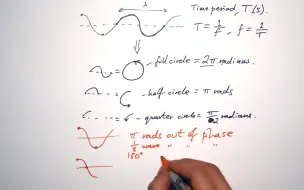 λ
Time period, T(s).
T = 1/f    f = 1/T
full circle = 2π radians.
half circle = π rads
quarter circle = π/2 radians.
π rads out of phase
1/2 wave " " "
180°